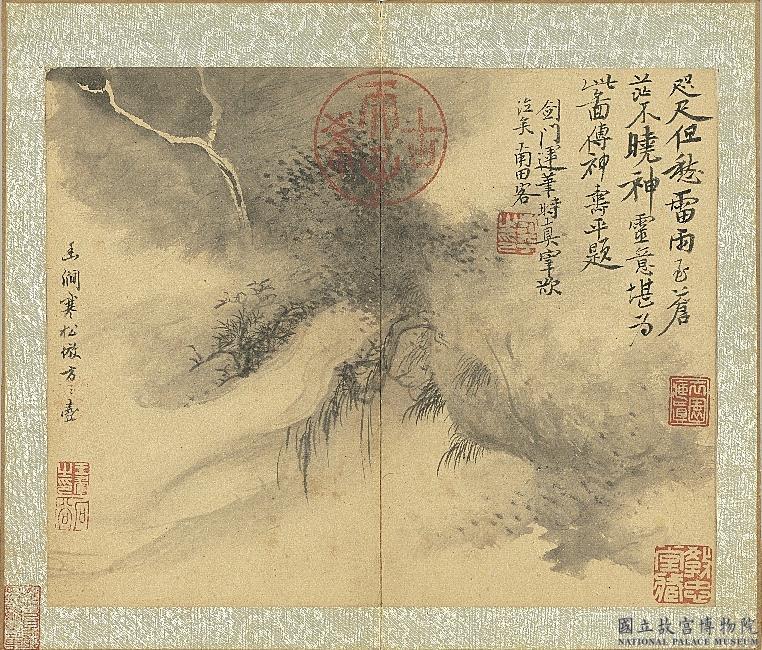 咫尺但愁雷雨至蒼
茫不曉神靈意堪為
此圖傳神壽平題
劍門運筆時真宰欲
泣矣南田客
幽澗寒松倣方〻壺
國立故宮博物院
NATIONAL PALACE MUSEUM